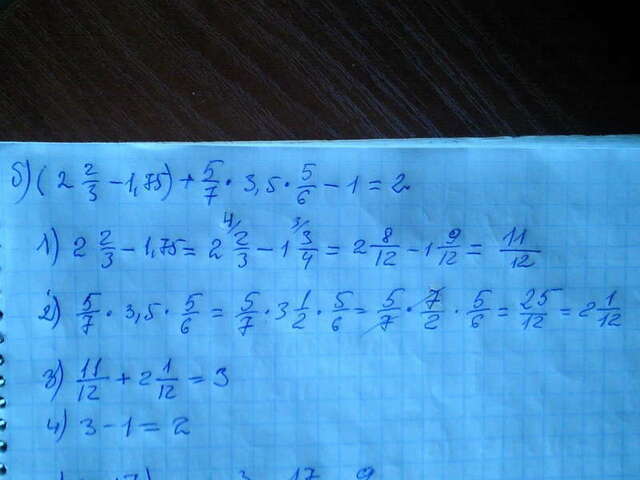 5) (2 2/3 - 1,75) + 5/7 · 3,5 · 5/6 - 1 = 2
1) 2 2/3 - 1,75 = 2 2/3 /4 - 1 3/4 /3 = 2 8/12 - 1 9/12 = 11/12
2) 5/7 · 3,5 · 5/6 = 5/7 · 3 1/2 · 5/6 = 5/7 · 7/2 · 5/6 = 25/12 = 2 1/12
3) 11/12 + 2 1/12 = 3
4) 3 - 1 = 2